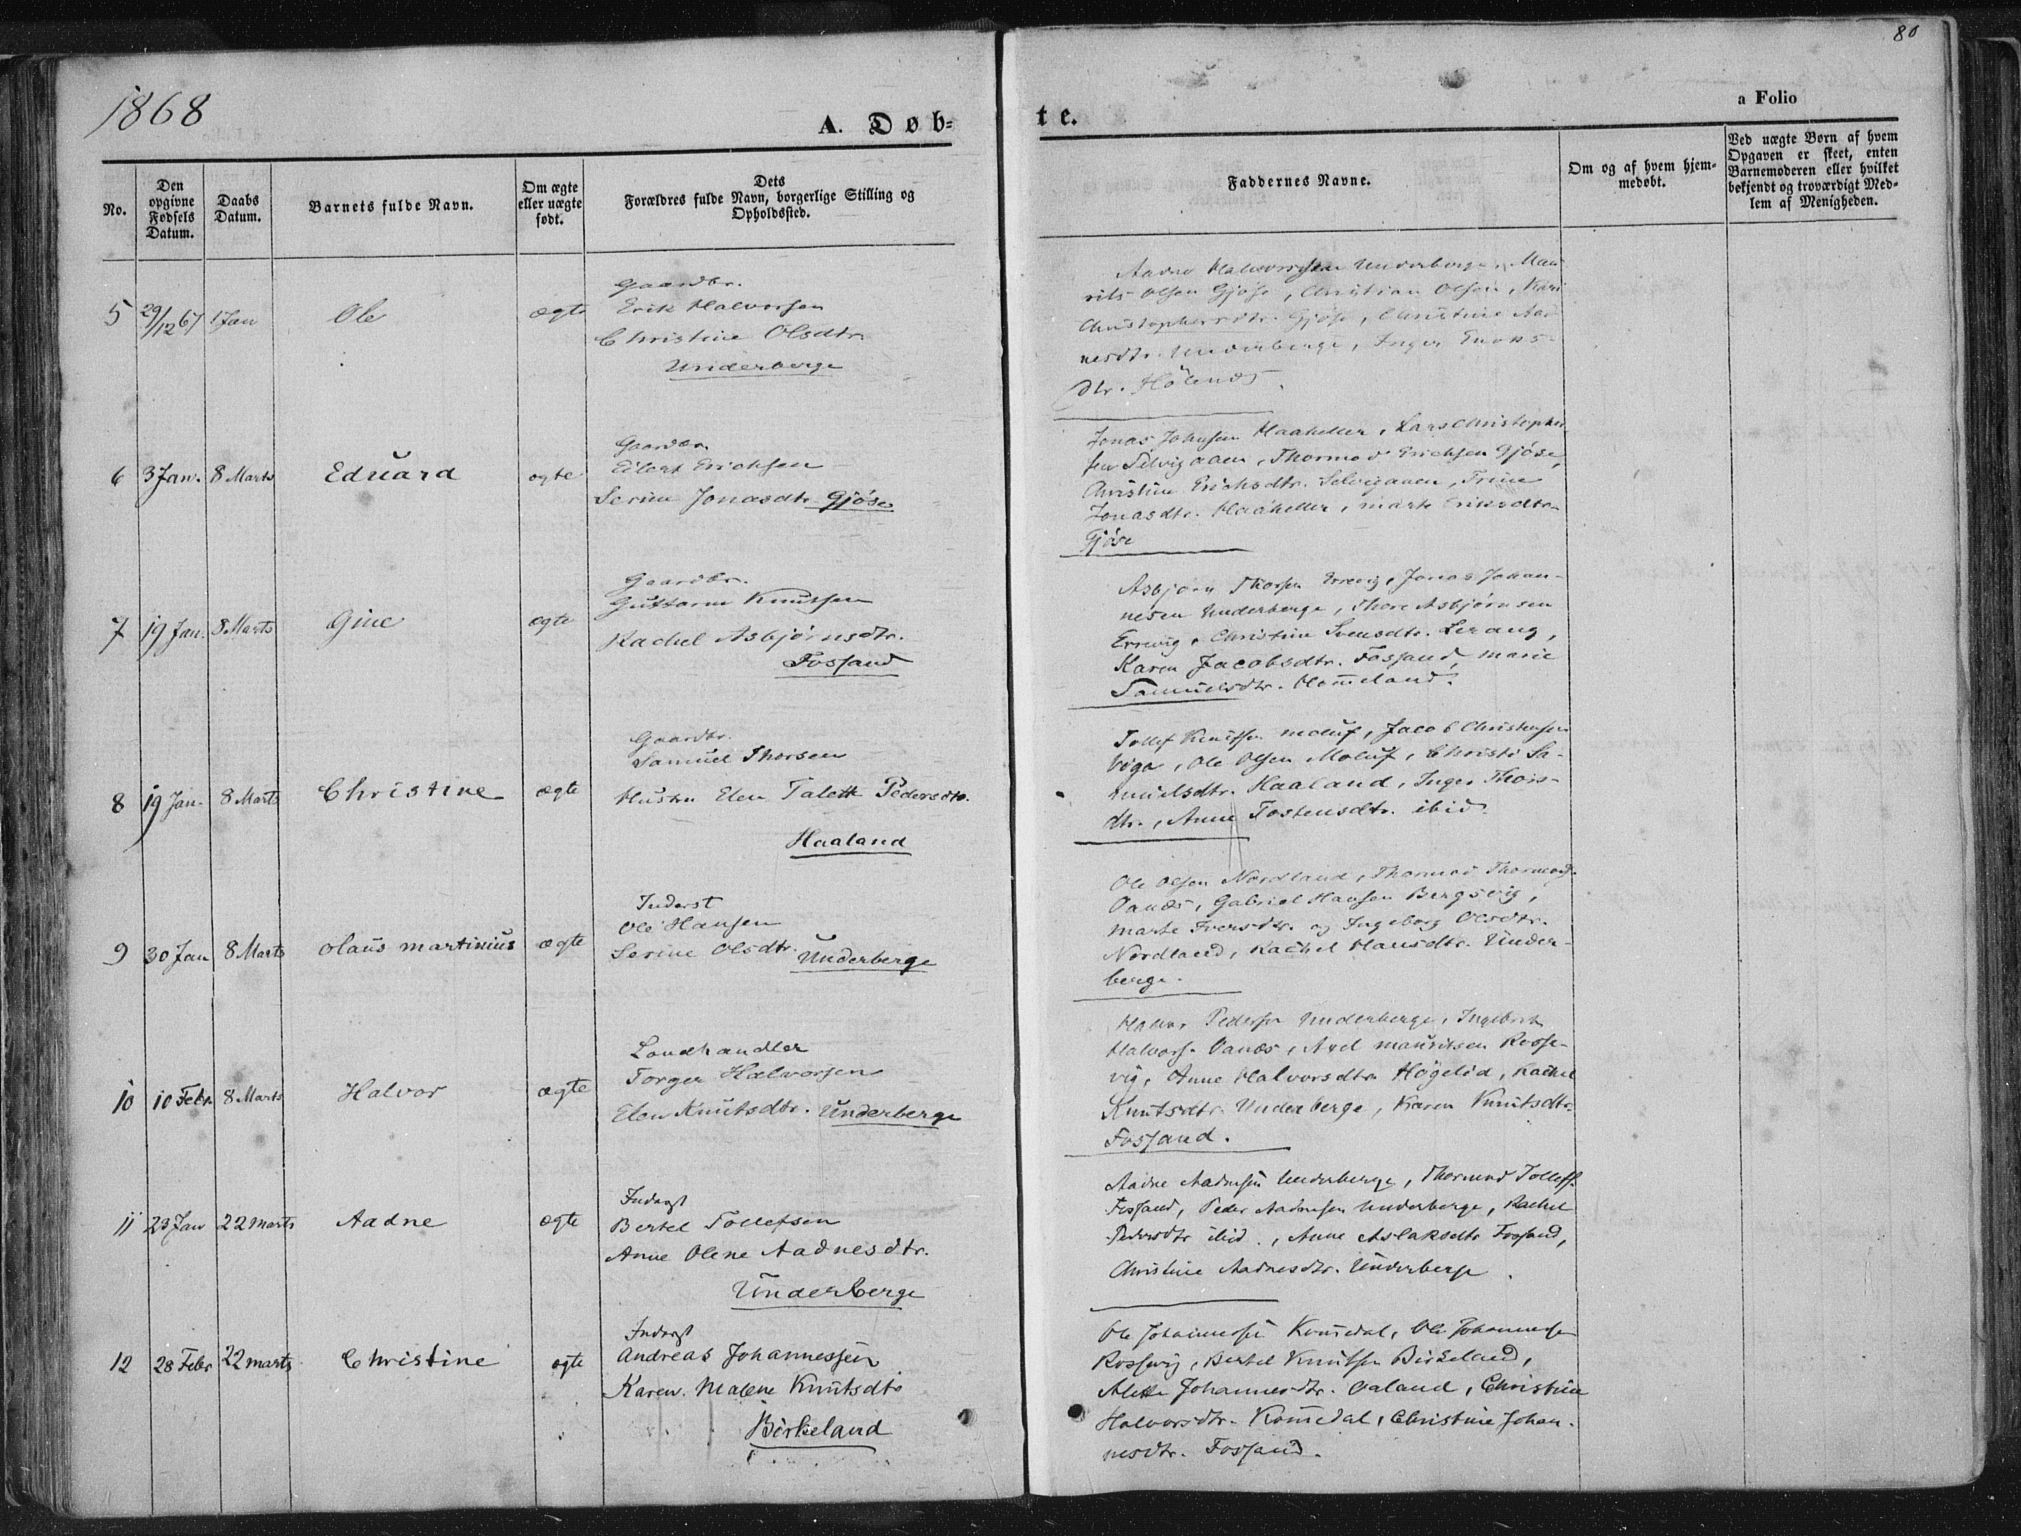 80
1868
A. Døb=
te.
a Folio
No.
Den opgivne Fødsels Datum.
Daabs Datum.
Barnets fulde Navn.
Om ægte eller uægte født.
Dets
Forældres fulde Navn, borgerlige Stilling og
Opholdssted.
Faddernes Navne.
Om og af hvem hjem-
medøbt.
Ved uægte Børn af hvem
Opgaven er skeet, enten
Barnemoderen eller hvilket
bekjendt og troværdigt Med-
lem af Menigheden.
5 29/12 67 1 Jan Ole ægte
Gaardbr.
Erik Halvorsen
Christine Olsdtr.
Underberge
Aadne Halvorsen Underberge, Mau
rits Olsen Gjøse, Christian Olsen, Kari
Christophersdtr. Gjøse, Christine Aad
nesdtr. Underberge, Inger Enoks-
dtr. Hølends.
6 3 Jan. 8 Marts Eduard ægte
Gaardbr.
Eilert Erichsen
Serine Jonasdtr Gjøse
Jonas Johnsen Haaheller, Lars Christopher
sen Selvigaaen, Thormod Erichsen Gjøse,
Christine Erichsdtr. Selvigaaen, Trine
Jonasdtr. Haaheller, Marte Eriksdtr
Gjøse
7 19 Jan. 8 Marts Gine ægte
Gaardbr.
Guttorm Knutsen
Rachel Asbjørnsdtr.
Fossand
Asbjørn Thorsen Erevig, Jonas Johan-
nesen Underberge, Thore Asbjørnsen
Erevig, Christine Svensdtr. Lerang,
Karen Jacobsdtr. Fossand, Marie
Samuelsdtr. Hommeland.
8 19 Jan. 8 Marts Christine ægte
Gaardbr.
Samuel Thorsen
Hustru Elen Talette Pedersdtr.
Haaland
Tollef Knutsen Moluf, Jacob Christensen
Vøga, Ole Olsen Moluf, Christi Sa-
muelsdtr. Haaland, Inger Thors-
dtr., Anne Tostensdtr. ibid.
9 30 Jan 8 Marts Olaus Martinius ægte
Inderst
Ole Hansen
Serine Olsdtr. Underberge
Ole Olsen Nordland, Thormod Thormods.
Oanæs, Gabriel Hansen Bergsvig,
Marte Iversdtr. og Ingeborg Olsdtr.
Nordland, Rachel Hansdtr. Under-
berge.
10 10 Febr. 8 Marts Halvor ægte
Landhandler
Torger Halvorsen
Elen Knutsdtr. Underberge
Halvor Pedersen Underberge, Ingebret
Halvors. Oanæs, Axel Mauritsen Rosse-
vig, Anne Halvorsdtr Høgelid, Rachel
Knutsdtr. Underberge, Karen Knutsdtr.
Fossand.
11 23 Jan 22 Marts Aadne ægte
Inderst
Bertel Tollefsen
Anne Olene Aadnesdtr.
Underberge
Aadne Aadnesen Underberge, Thormod Tollefs.
Fossand, Peder Aadnesen Underberge, Rachel
Pedersdtr ibid., Anne Aslaksdtr Fossand,
Christine Aadnesdtr. Underberge.
12 28 Febr 22 Marts Christine ægte
Inderst
Andreas Johannessen
Karen Malene Knutsdtr
Birkeland
Ole Johannessen Komedal, Ole Johannesen
Rossevig, Bertel Knutsen Birkeland,
Alette Johannesdtr. Oaland, Christine
Halvorsdtr. Komedal, Christine Johan-
nesdtr. Fossand.